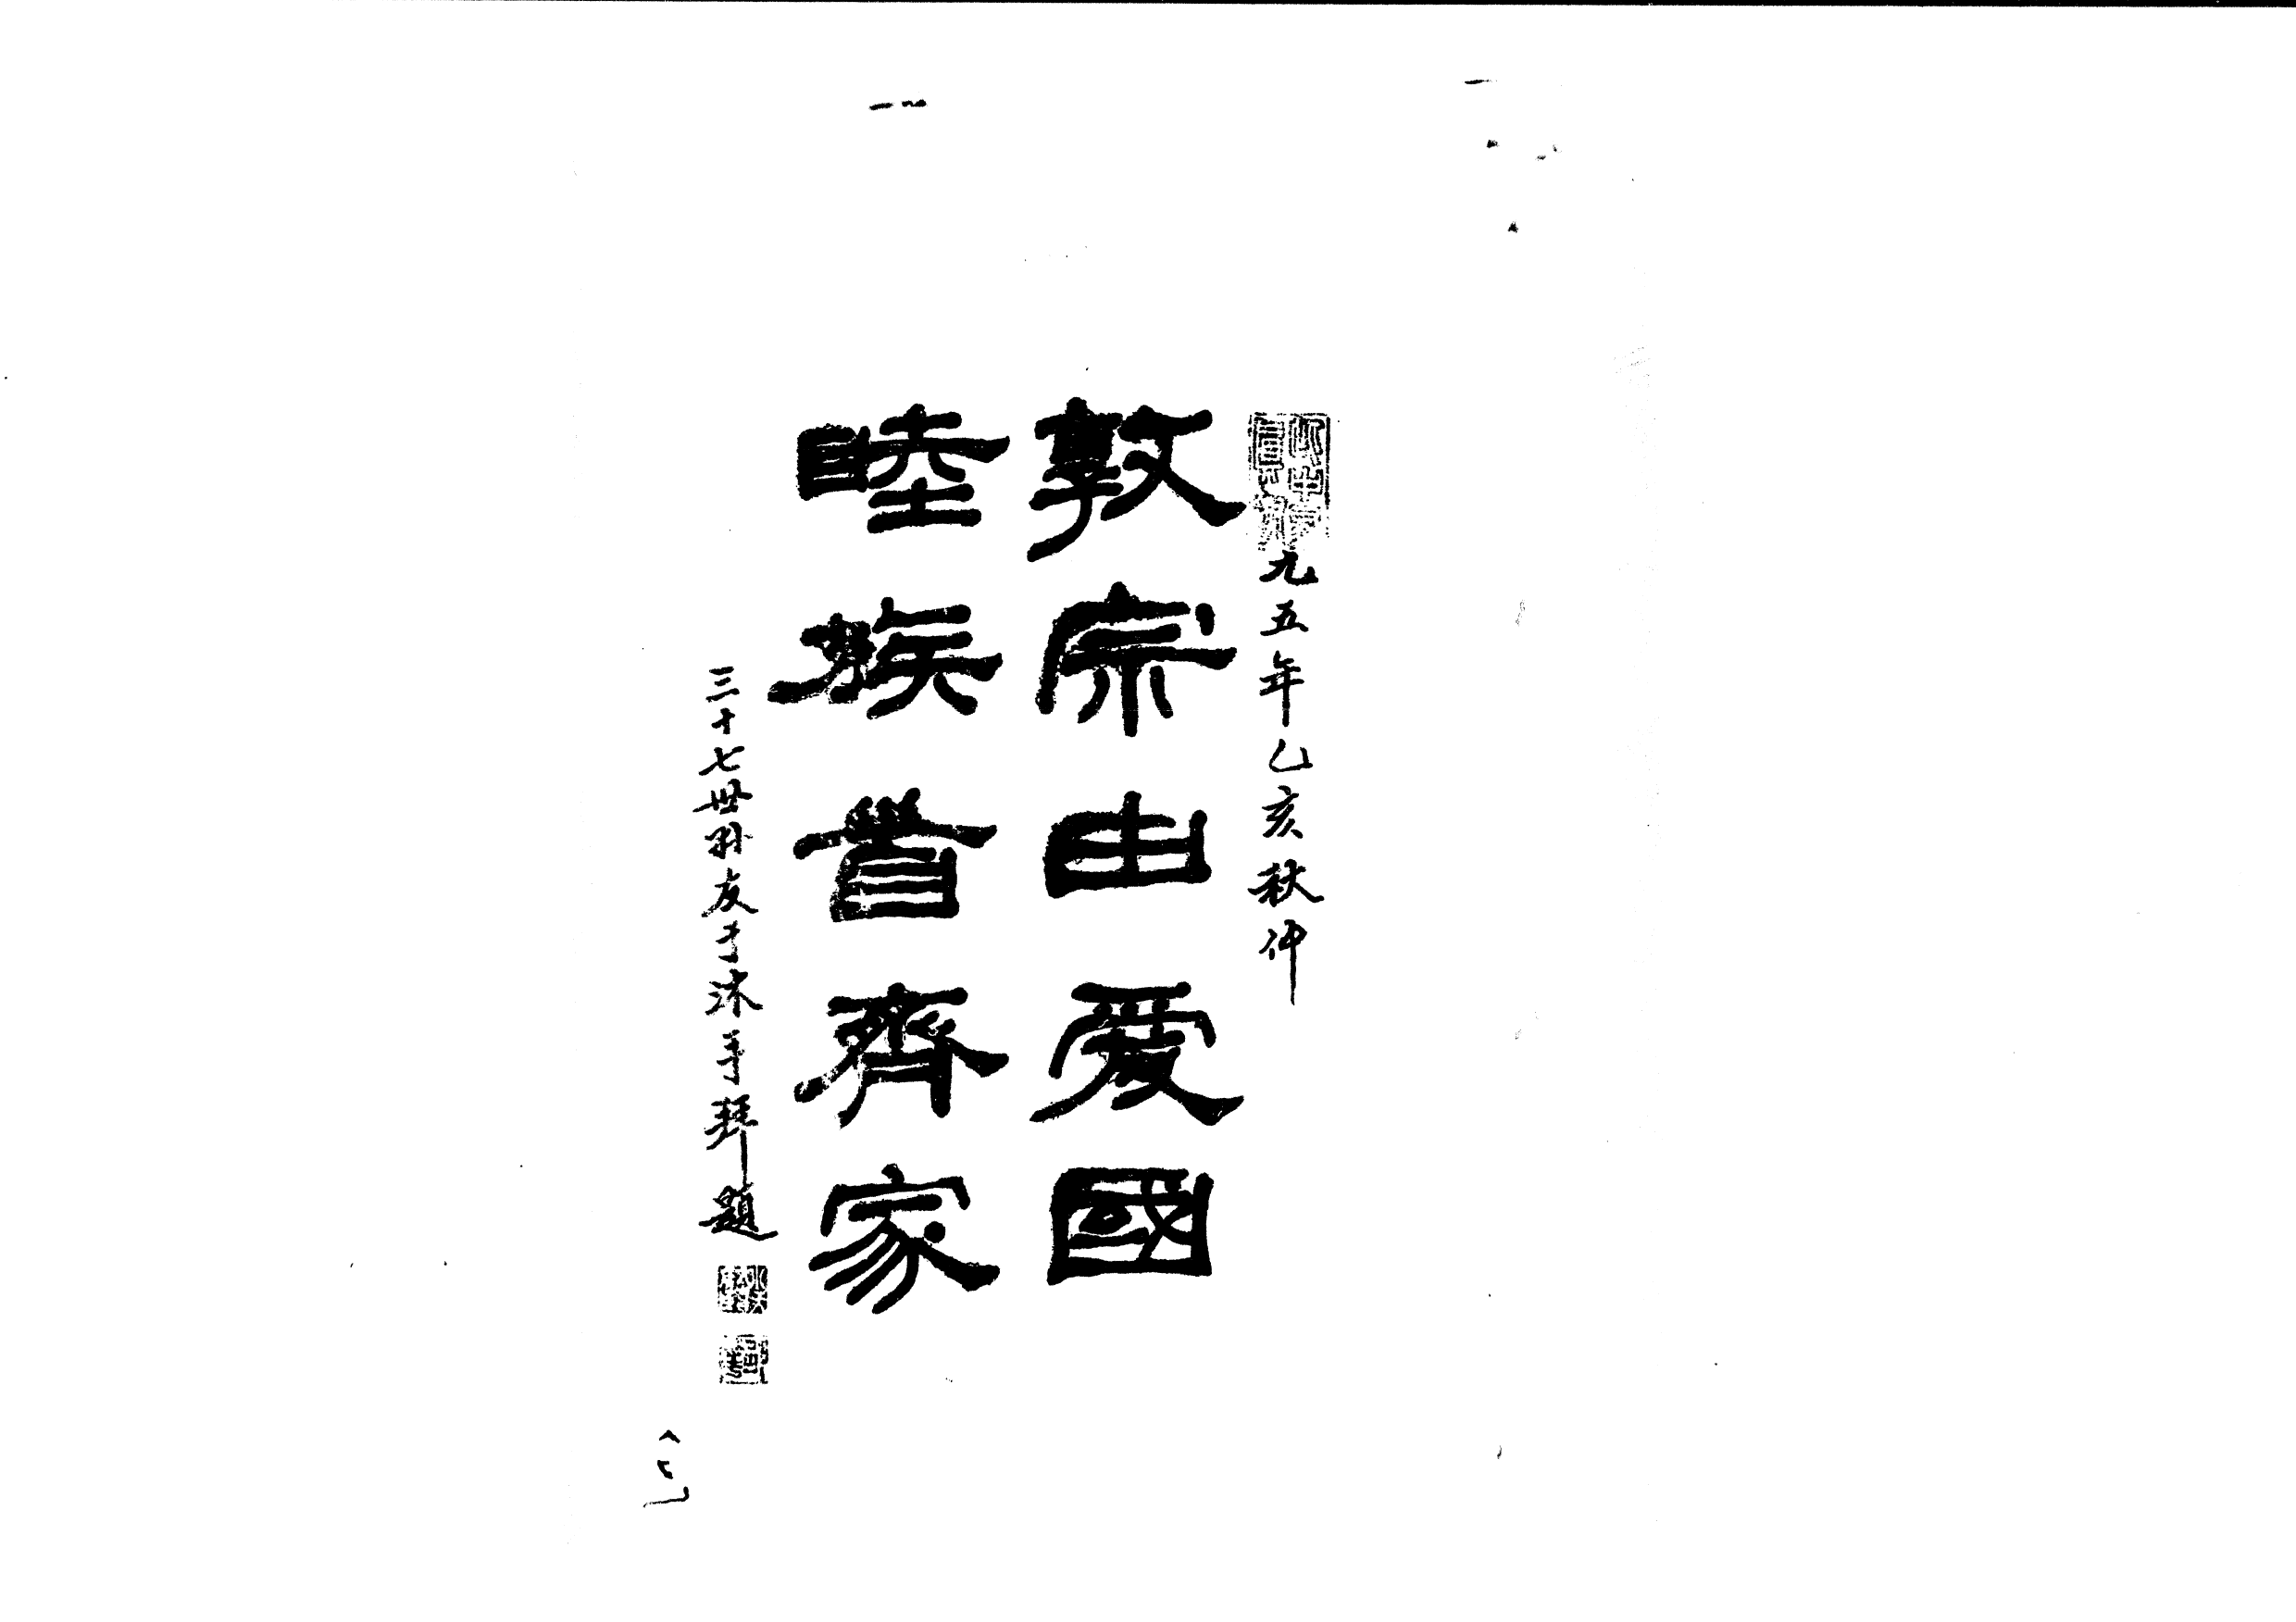 九五年乙亥秋仲
敦宗由愛國
睦族首齊家
三十七世孙友于沐手拜題